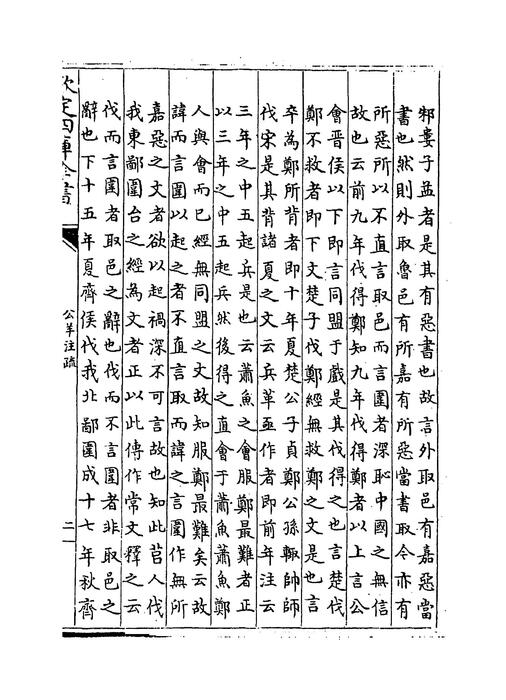 邾婁子益者是其有惡書也故言外取邑有嘉惡當
書也然則外取魯邑有所嘉有所惡當書取今亦有
所惡所以不直言取邑而言圍者深恥中國之無信
故也云前九年伐得鄭知九年伐得鄭者以上言公
會晉侯以下即言同盟于戲是其伐得之也言楚伐
鄭不救者即下文楚子伐鄭經無救鄭之文是也言
卒為鄭所背者即十年夏楚公子貞鄭公孫輒帥師
伐宋是其背諸夏之文云兵革亟作者即前年注云
三年之中五起兵是也云蕭魚之會服鄭最難者正
以三年之中五起兵然後得之直會于蕭魚蕭魚鄭
人與會而已經無同盟之文故知服鄭最難矣云故
諱而言圍以起之者不直言取而諱之言圍作無所
嘉惡之文者欲以起禍深不可言故也知此莒人伐
我東鄙圍台之經為文者正以此傳作常文釋之云
伐而言圍者取邑之辭也伐而不言圍者非取邑之
辭也下十五年夏齊侯伐我北鄙圍成十七年秋齊
欽定四庫全書
公羊注疏
二一